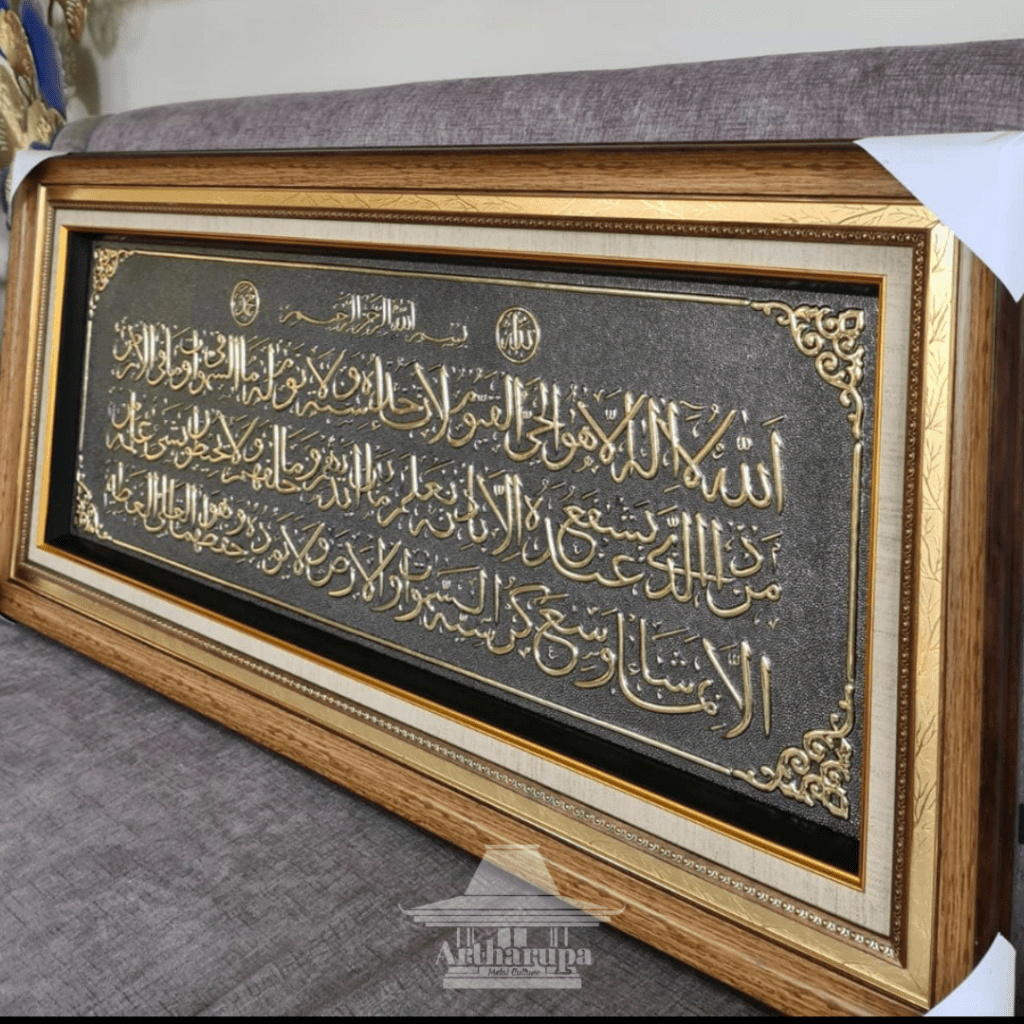 الله
بسم الله الرحمن الرحيم
محمد
الله لا اله الا هو الحي القيوم لا تاخذه سنة ولا نوم له ما في السموات وما في الارض
من ذا الذي يشفع عنده الا باذنه يعلم ما بين ايديهم وما خلفهم ولا يحيطون بشئ من علمه
الا بما شاء وسع كرسيه السموات والارض ولا يؤده حفظهما وهو العلي العظيم
Artharupa
Metal Culture